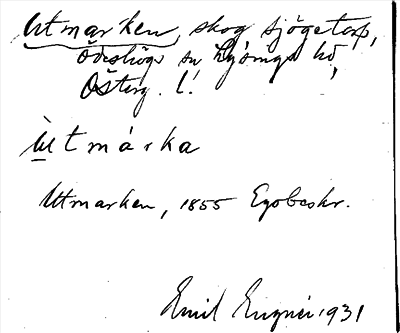 Utmarken, skog Sjögetorp,
Ödeshögs sn Lysings hd,
Österg. l.
Ùtmárka
Utmarken, 1855 Egobeskr.
Emil Eugnér 1931